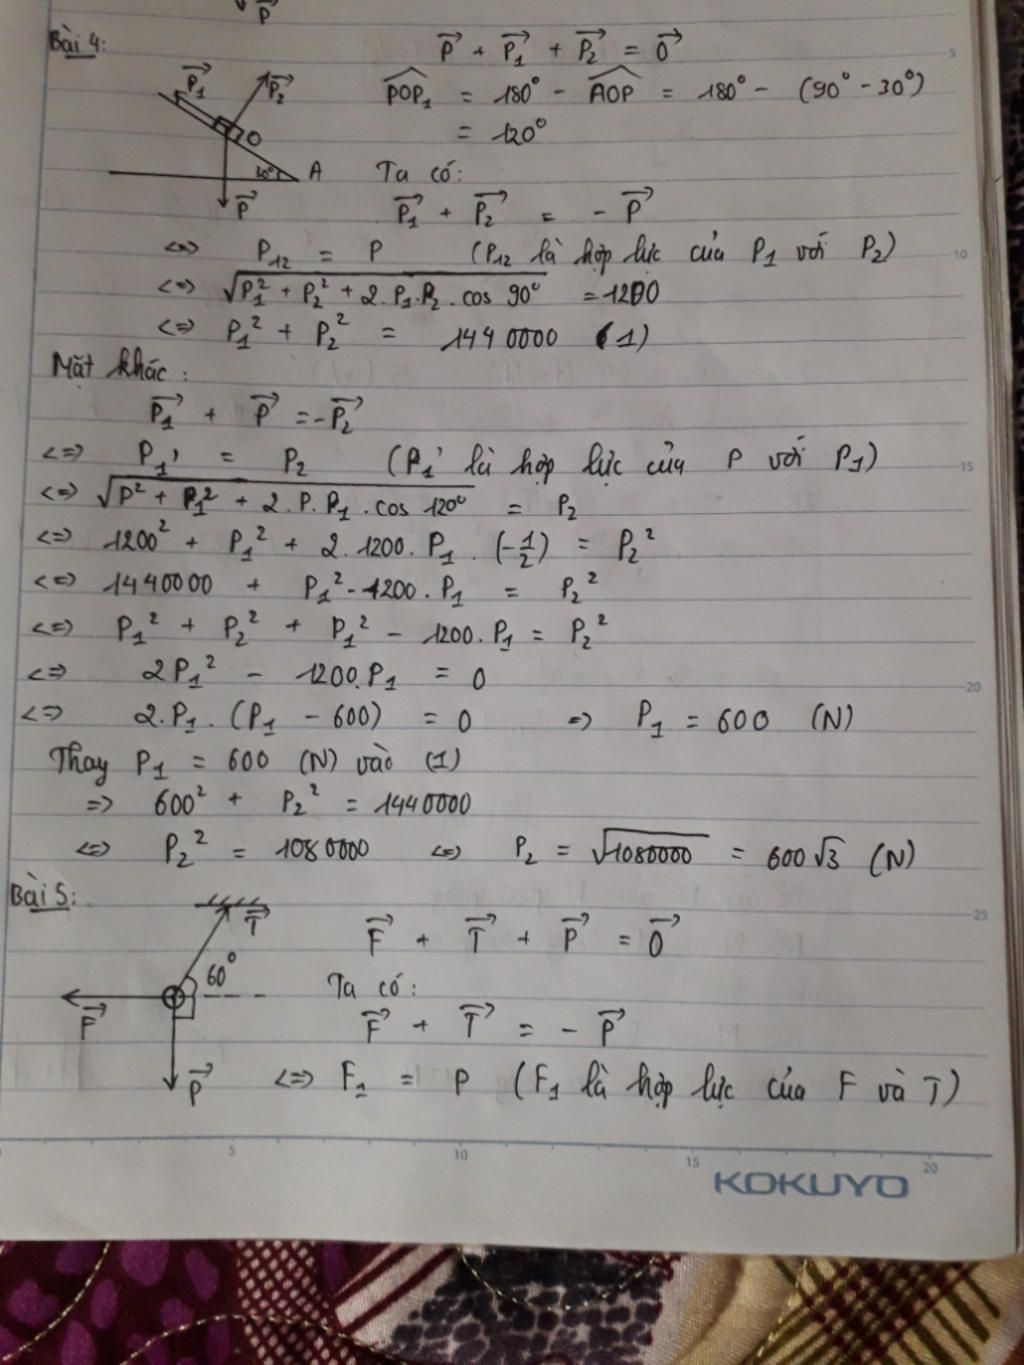 P⃗
Bài 4:
P⃗ + P₁⃗ + P₂⃗ = 0⃗
P₁⃗ P₂⃗ O 30° A P⃗
POP₁ = 180° - AOP = 180° - (90° - 30°)
= 120°
Ta có:
P₁⃗ + P₂⃗ = - P⃗
<=> P₁₂ = P (P₁₂ là hợp lực của P₁ với P₂)
<=> √(P₁² + P₂² + 2.P₁.P₂.cos 90°) = 1200
<=> P₁² + P₂² = 1440000 (1)
Mặt khác:
P₁⃗ + P⃗ = -P₂⃗
<=> P₁' = P₂ (P₁' là hợp lực của P với P₁)
<=> √(P² + P₁² + 2.P.P₁.cos 120°) = P₂
<=> 1200² + P₁² + 2.1200.P₁.(-1/2) = P₂²
<=> 1440000 + P₁² - 1200.P₁ = P₂²
<=> P₁² + P₂² + P₁² - 1200.P₁ = P₂²
<=> 2P₁² - 1200.P₁ = 0
<=> 2.P₁.(P₁ - 600) = 0 => P₁ = 600 (N)
Thay P₁ = 600 (N) vào (1)
=> 600² + P₂² = 1440000
<=> P₂² = 1080000 <=> P₂ = √1080000 = 600√3 (N)
Bài 5:
F⃗ + T⃗ + P⃗ = 0⃗
T⃗ 60° F⃗ P⃗
Ta có:
F⃗ + T⃗ = - P⃗
<=> F₁ = P (F₁ là hợp lực của F và T)
5 10 15 20
5 10 15 20 25
KOKUYO